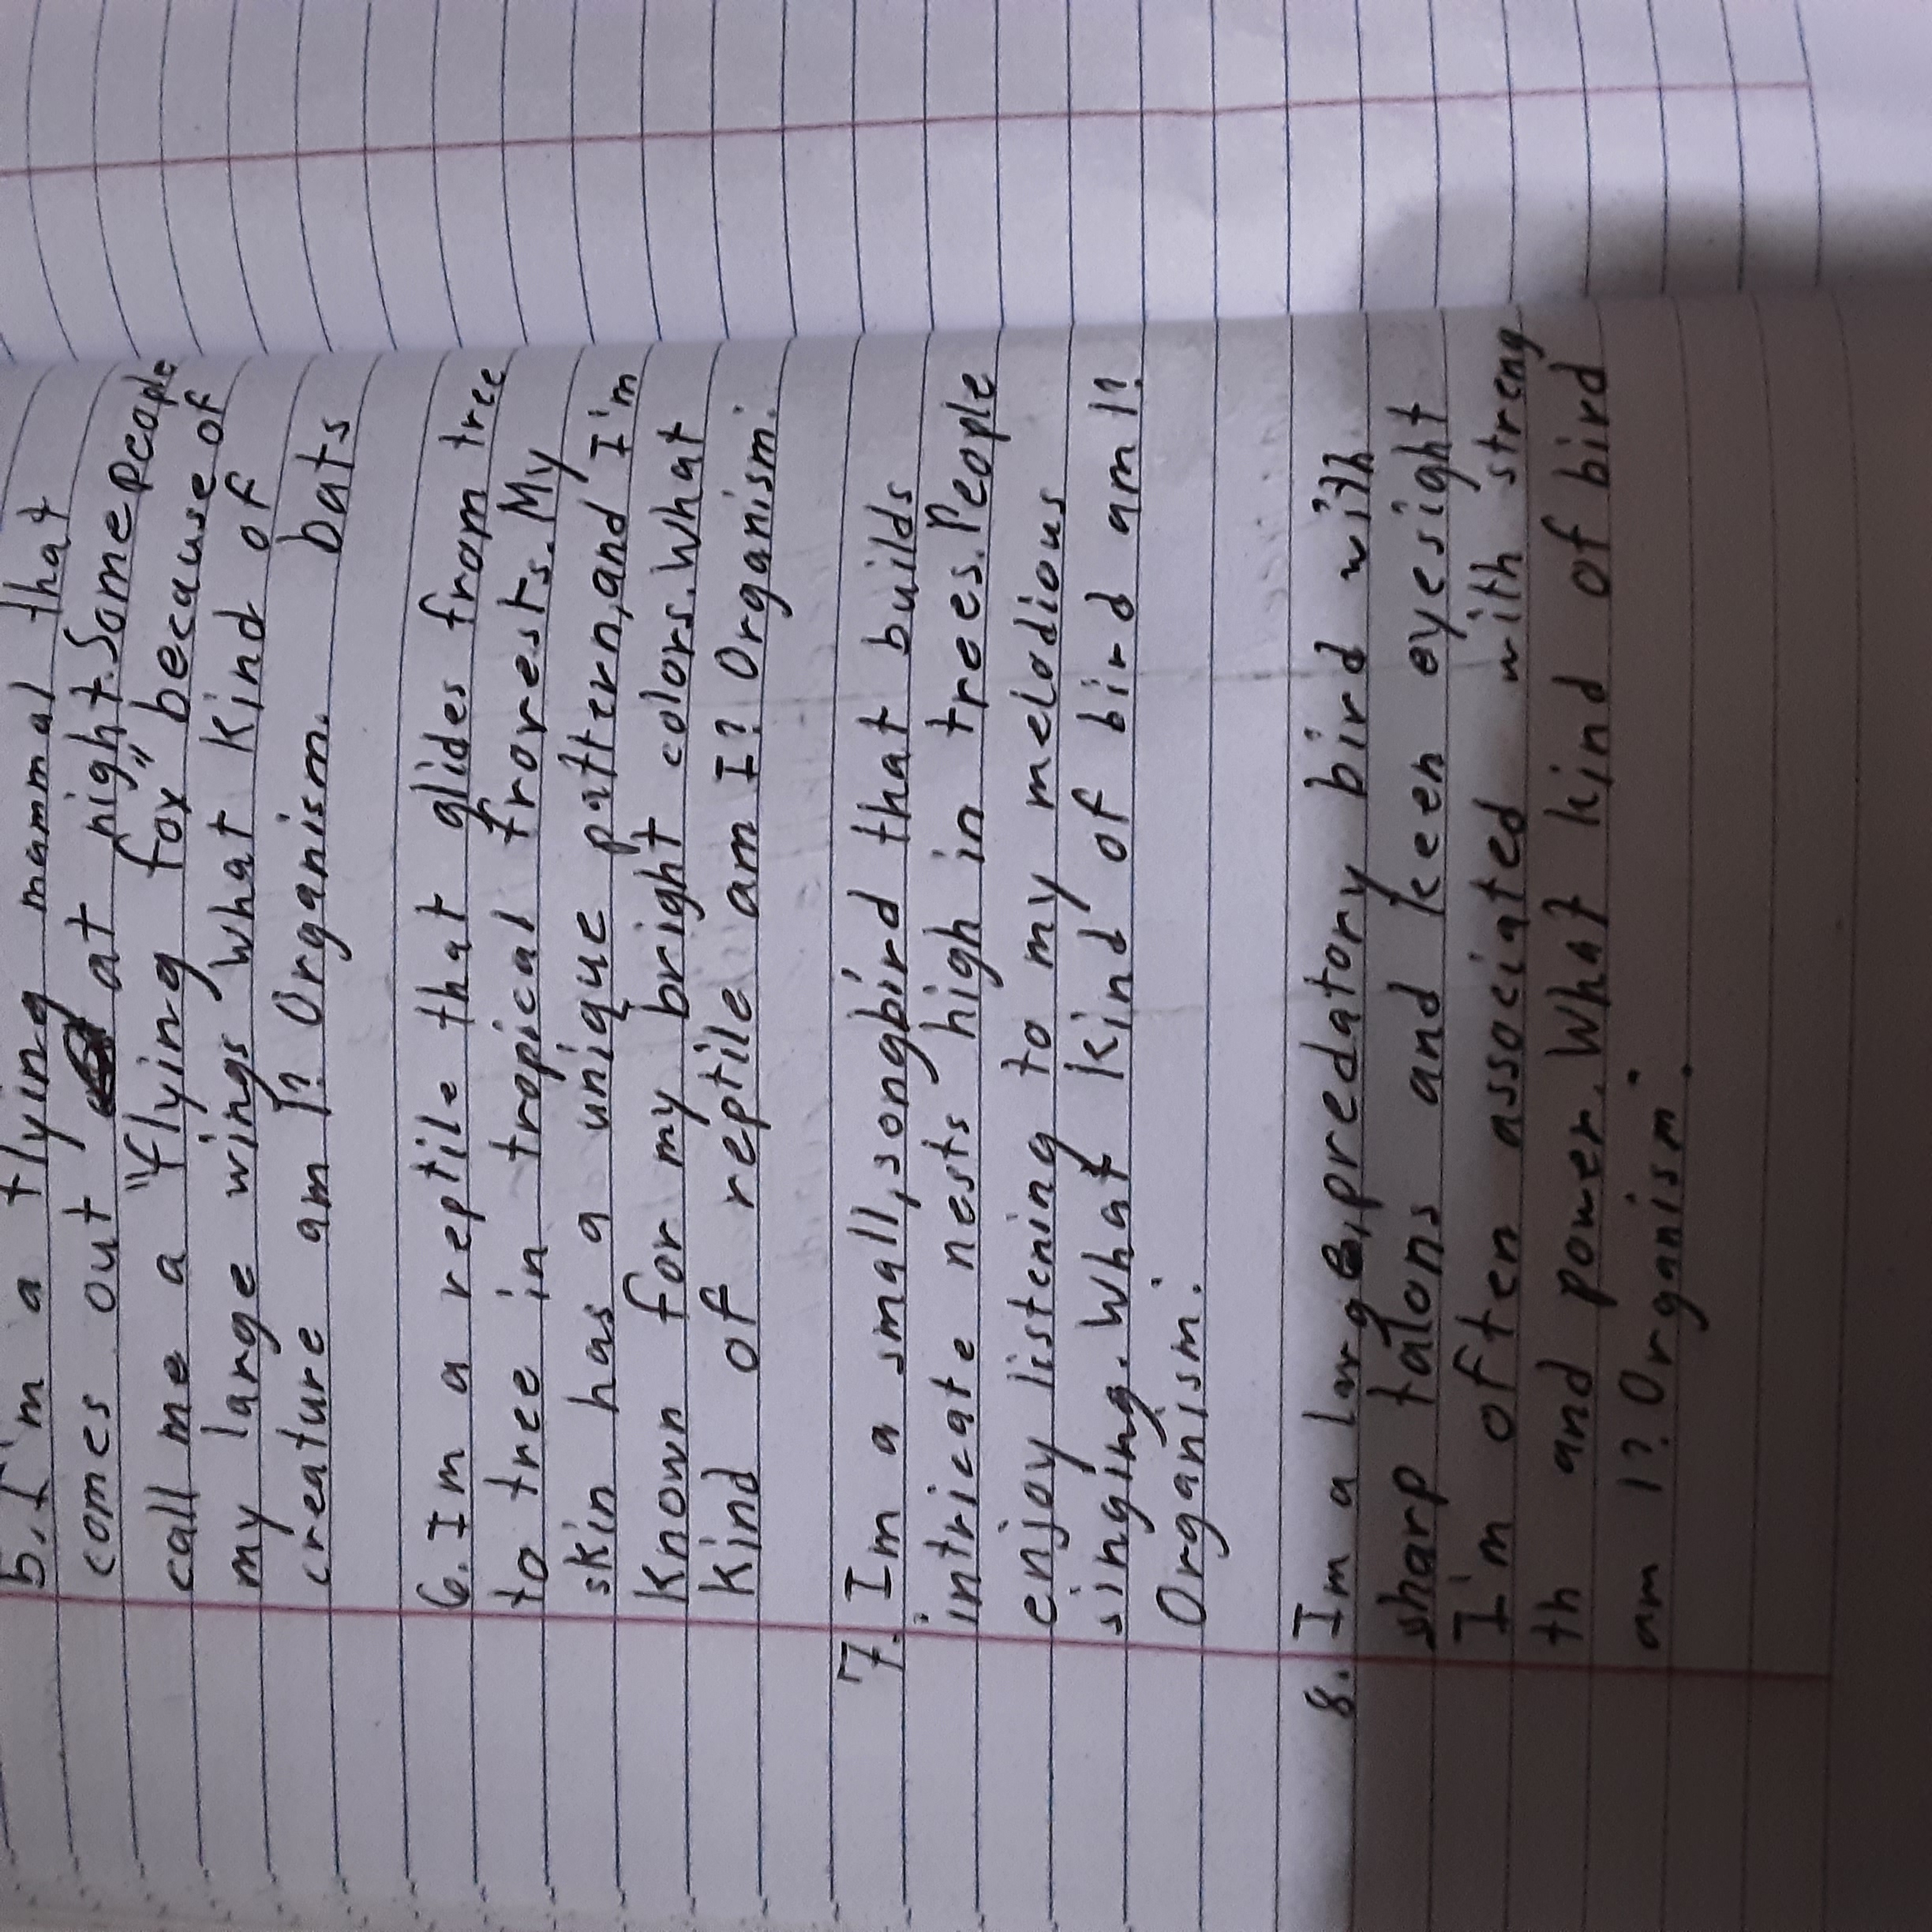 5. I'm a flying mammal that
comes out at night. Some people
call me a "flying fox" because of
my large wings what kind of
creature am I? Organism. bats
6. Im a reptile that glides from tree
to tree in tropical frorests. My
skin has a unique pattern, and I'm
known for my bright colors. What
kind of reptile am I? Organism:
7. Im a small, songbird that builds
intricate nests high in trees. People
enjoy listening to my melodious
singing. What kind of bird am I?
Organism:
8. Im a large, predatory bird with
sharp talons and keen eyesight
I'm often associated with streng
th and power. What kind of bird
am I? Organism: